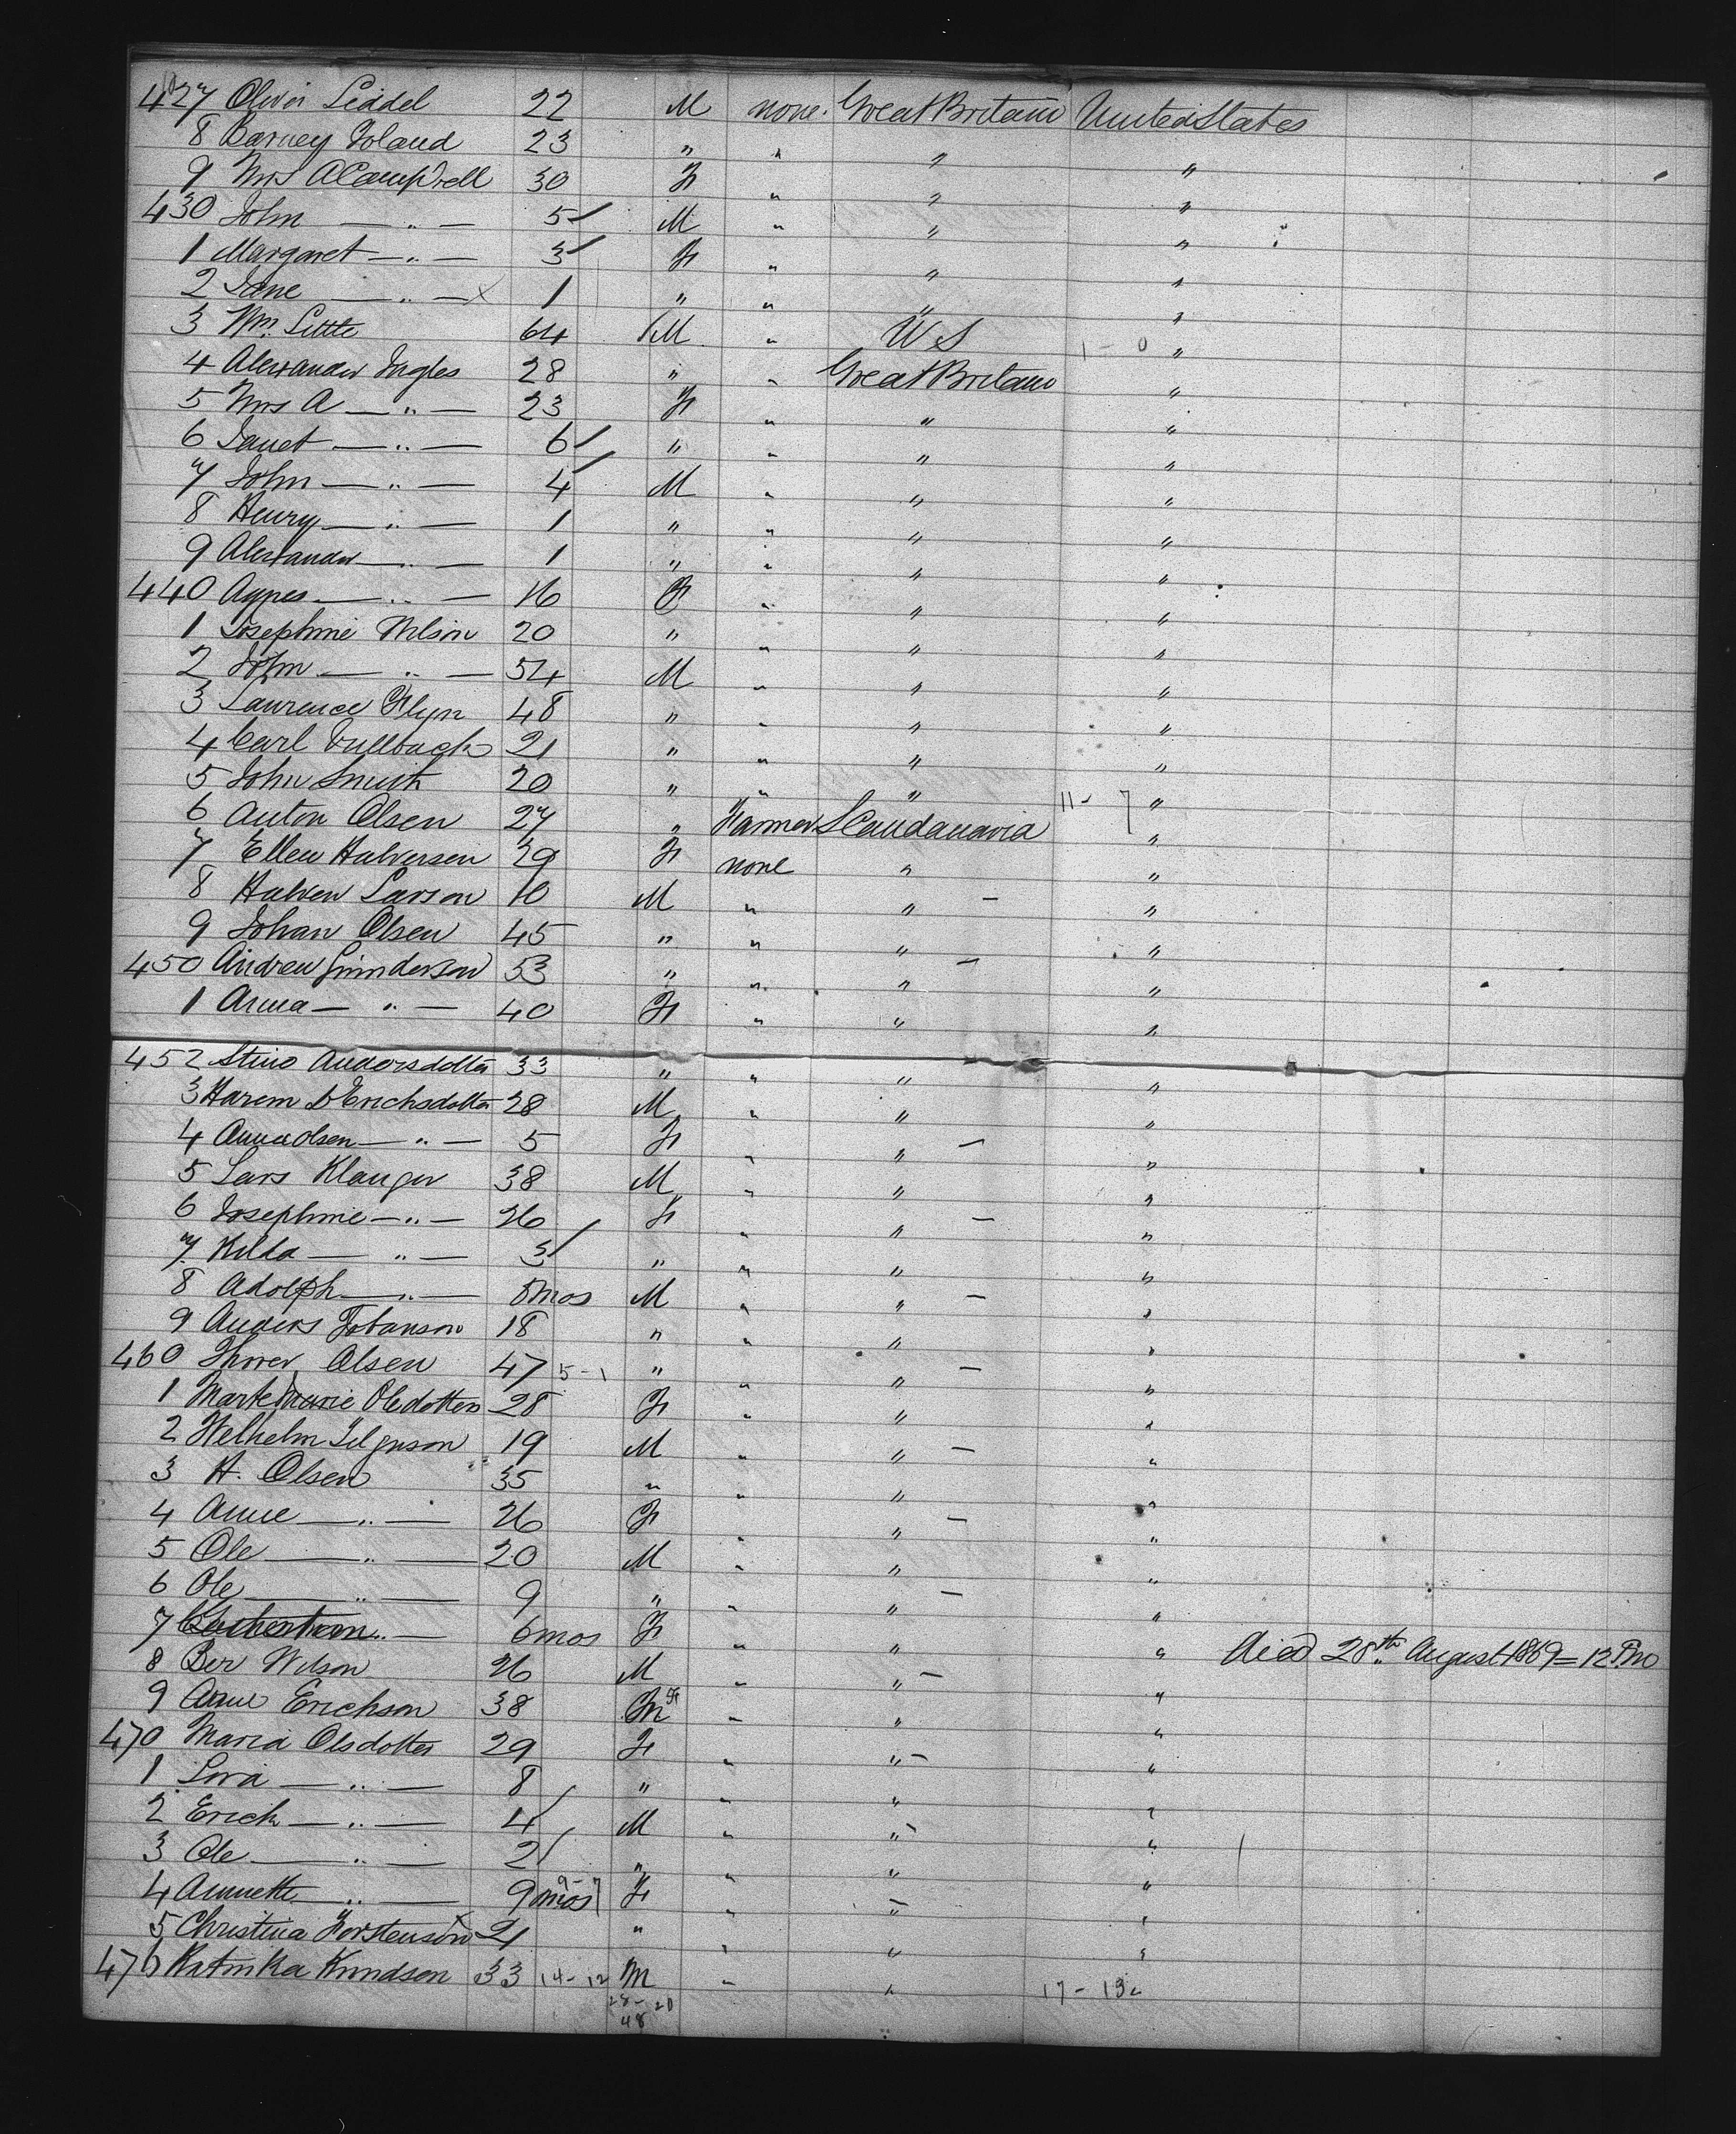 427 Oliver Liddel 22 M none. Great Britain United States
8 Barney Boland 23 " " " "
9 Mrs A Campbell 30 F " " "
430 John — " — 5 M " " "
1 Margaret — " — 3 F " " "
2 Jane — " — x 1 " " " "
3 Wm Little 64 M " U S 1 - 0 "
4 Alexander Ingles 28 " " Great Britain "
5 Mrs A — " — 23 F " " "
6 Janet — " — 6 " " " "
7 John — " — 4 M " " "
8 Henry — " — 1 " " " "
9 Alexander — " — 1 " " " "
440 Agnes — " — 16 F " " "
1 Josephine Wilson 20 " " " "
2 John — " — 54 M " " "
3 Lawrence Flyn 48 " " " "
4 Carl 21 " " " "
5 John Smith 20 " " " 11 - 7 "
6 Anton Olsen 27 " Farmer Scandanavia "
7 Ellen Halversen 29 F none " "
8 Halven Larson 10 M " " — "
9 Johan Olsen 45 " " " "
450 Andrew Gunderson 53 " " " — "
1 Anna — " — 40 F " " "
452 Stino Andersdotter 33 " " " "
3 Karem D Erichsdotter 28 M " " "
4 Anna Olsen — " — 5 F " " — "
5 Lars Klanger 38 M " " "
6 Josephine — " — 26 F " " — "
7 Kilda — " — 3 " " " "
8 Adolph — " — 8 mos M " " — "
9 Anders Johanson 18 " " " "
460 Thorer Olsen 47 5 - 1 " " " — "
1 Marte Marie Oledotter 28 F " " "
2 Welhelm 19 M " " — "
3 H. Olsen 35 " " " "
4 Anne — " — 26 F " " — "
5 Ole — " — 20 M " " "
6 Ole — " — 9 " " " — "
7 — " — 6 mos F " " " died 28th August 1869 = 12 P.m
8 Ber Wilson 26 M " " — "
9 Anne Erichson 38 F " " "
470 Maria Olsdotter 29 F " " — "
1 Lora — " — 8 " " " "
2 Erick — " — 4 M " " — "
3 Ole — " — 2 " " " "
4 Annette — " — 9 mos 9 - 7 F " " — "
5 Christina Torstenson 21 " " " "
476 Katinka Kundson 33 14 - 12 M " " 17 - 13 "
28 - 20
48